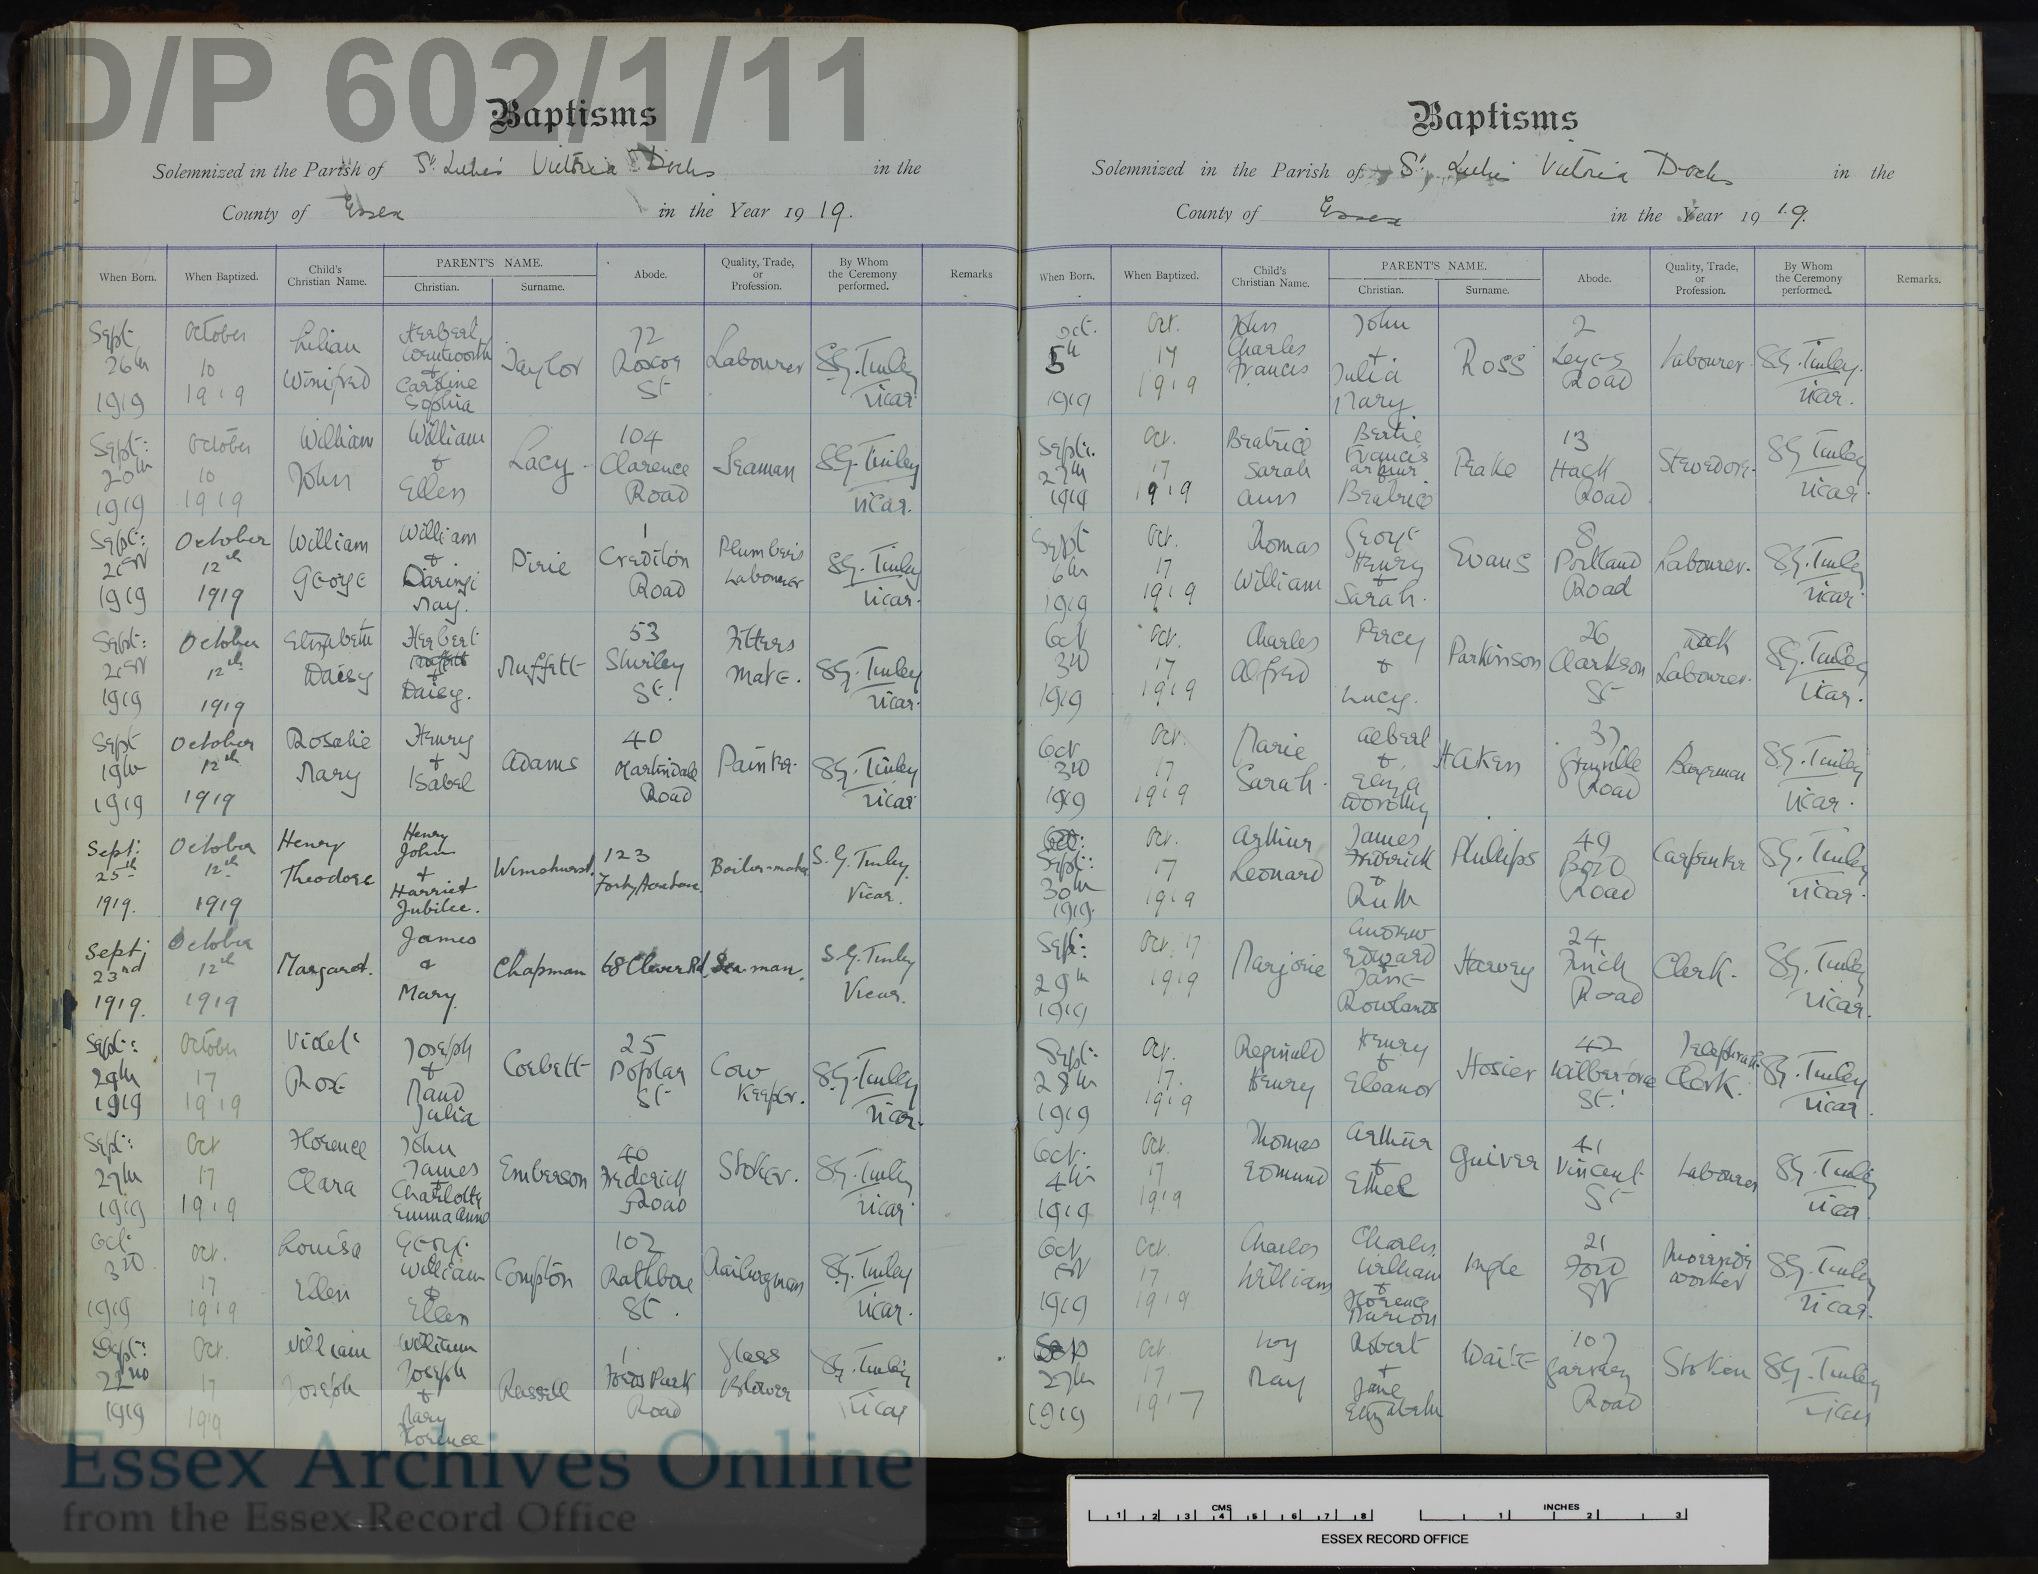 D/P 602/1/11
Baptisms
Solemnized in the Parish of St Luke's Victoria Docks in the
County of Essex in the Year 1919.
When Born. When Baptized. Child's Christian Name. PARENT'S NAME. Christian. Surname. Abode. Quality, Trade, or Profession. By Whom the Ceremony performed. Remarks
Sept 26th 1919 October 10 1919 Lilian Winifred Herbert Wentworth + Caroline Sophia Taylor 72 Roscoe St Labourer Tinley Vicar
Sept: 20th 1919 October 10 1919 William John William + Ellen Lacy 104 Clarence Road Seaman Tinley Vicar.
Sept: 1919 October 12th 1919 William George William + May. Pirie 1 Crediton Road Plumber's Labourer Tinley Vicar.
Sept: 1919 October 12th 1919 Elizabeth Daisy Herbert + Daisy. Muffett 53 Shirley St. Fitters Mate. Tinley Vicar.
Sept 19th 1919 October 12th 1919 Rosalie Mary Henry + Isabel Adams 40 Martindale Road Painter. Tinley Vicar
Sept: 25th 1919. October 12th 1919 Henry Theodore Henry John + Harriet Jubilee. Wimshurst. 123 Boiler-maker S. G. Tinley. Vicar.
Sept; 23rd 1919. October 12th 1919 Margaret. James & Mary. Chapman 68 Clever Rd. Sea-man. S. G. Tinley Vicar.
Sept: 29th 1919 October 17 1919 Violet Rose Joseph + Maud Julia Corbett 25 Poplar St Cow Keeper. S.G. Tinley Vicar.
Sept: 27th 1919 Oct 17 1919 Florence Clara John James + Charlotte Emma Anna Emberson 40 Frederick Road Stoker. Tinley Vicar
Oct: 3rd 1919 Oct. 17 1919 Louisa Ellen George William & Ellen Compton 102 Rathbone St. Tinley Vicar.
Sept: 22nd 1919 Oct. 17 1919 William Joseph William Joseph + Mary Florence Russell 1 Park Road Glass Blower Tinley Vicar
Baptisms
Solemnized in the Parish of St Luke's Victoria Docks in the
County of Essex in the Year 1919.
When Born. When Baptized. Child's Christian Name. PARENT'S NAME. Christian. Surname. Abode. Quality, Trade, or Profession. By Whom the Ceremony performed. Remarks.
Oct. 5th 1919 Oct. 17 1919 John Charles Francis John + Julia Mary Ross 2 Leyes Road Labourer Tinley. Vicar.
Sept: 27th 1919 Oct. 17 1919 Beatrice Sarah Ann Bertie Francis Arthur Beatrice Peake 13 Hack Road Stevedore. Tinley Vicar.
Sept 6th 1919 Oct. 17 1919 Thomas William George Henry + Sarah. Evans 8 Portland Road Labourer. Tinley Vicar
Oct 3rd 1919 Oct. 17 1919 Charles Alfred Percy + Lucy. Parkinson 26 Clarkson St Dock Labourer. Tinley Vicar.
Oct 3rd 1919 Oct. 17 1919 Marie Sarah. Albert + Eliza Dorothy Haken 37 Granville Road Bargeman Tinley Vicar.
Sept: 30th 1919. Oct. 17 1919 Arthur Leonard James Frederick + Ruth Phillips 49 Boyd Road Carpenter Tinley Vicar.
Sept: 29th 1919 Oct. 17 1919 Marjorie Andrew Edward Jane Rowlands Harvey 24 Finch Road Clerk. Tinley Vicar.
Sept: 28th 1919 Oct. 17. 1919 Reginald Henry Henry + Eleanor Hosier 42 Wilberforce St. Telephone Clerk. Tinley Vicar
Oct. 4th 1919 Oct. 17 1919 Thomas Edmund Arthur + Ethel Quiver 41 Vincent St Labourer Tinley Vicar
Oct 1919 Oct. 17 1919 Charles William Charles William + Florence Marion Ingle 21 Ford St Worker Tinley Vicar.
Sep 27th 1919 Oct 17 1917 Ivy May Robert + Jane Elizabeth Waite 107 Garvary Road Tinley Vicar
Essex Archives Online
from the Essex Record Office
CMS
1 2 3 4 5 6 7 8
INCHES
1 2 3
ESSEX RECORD OFFICE